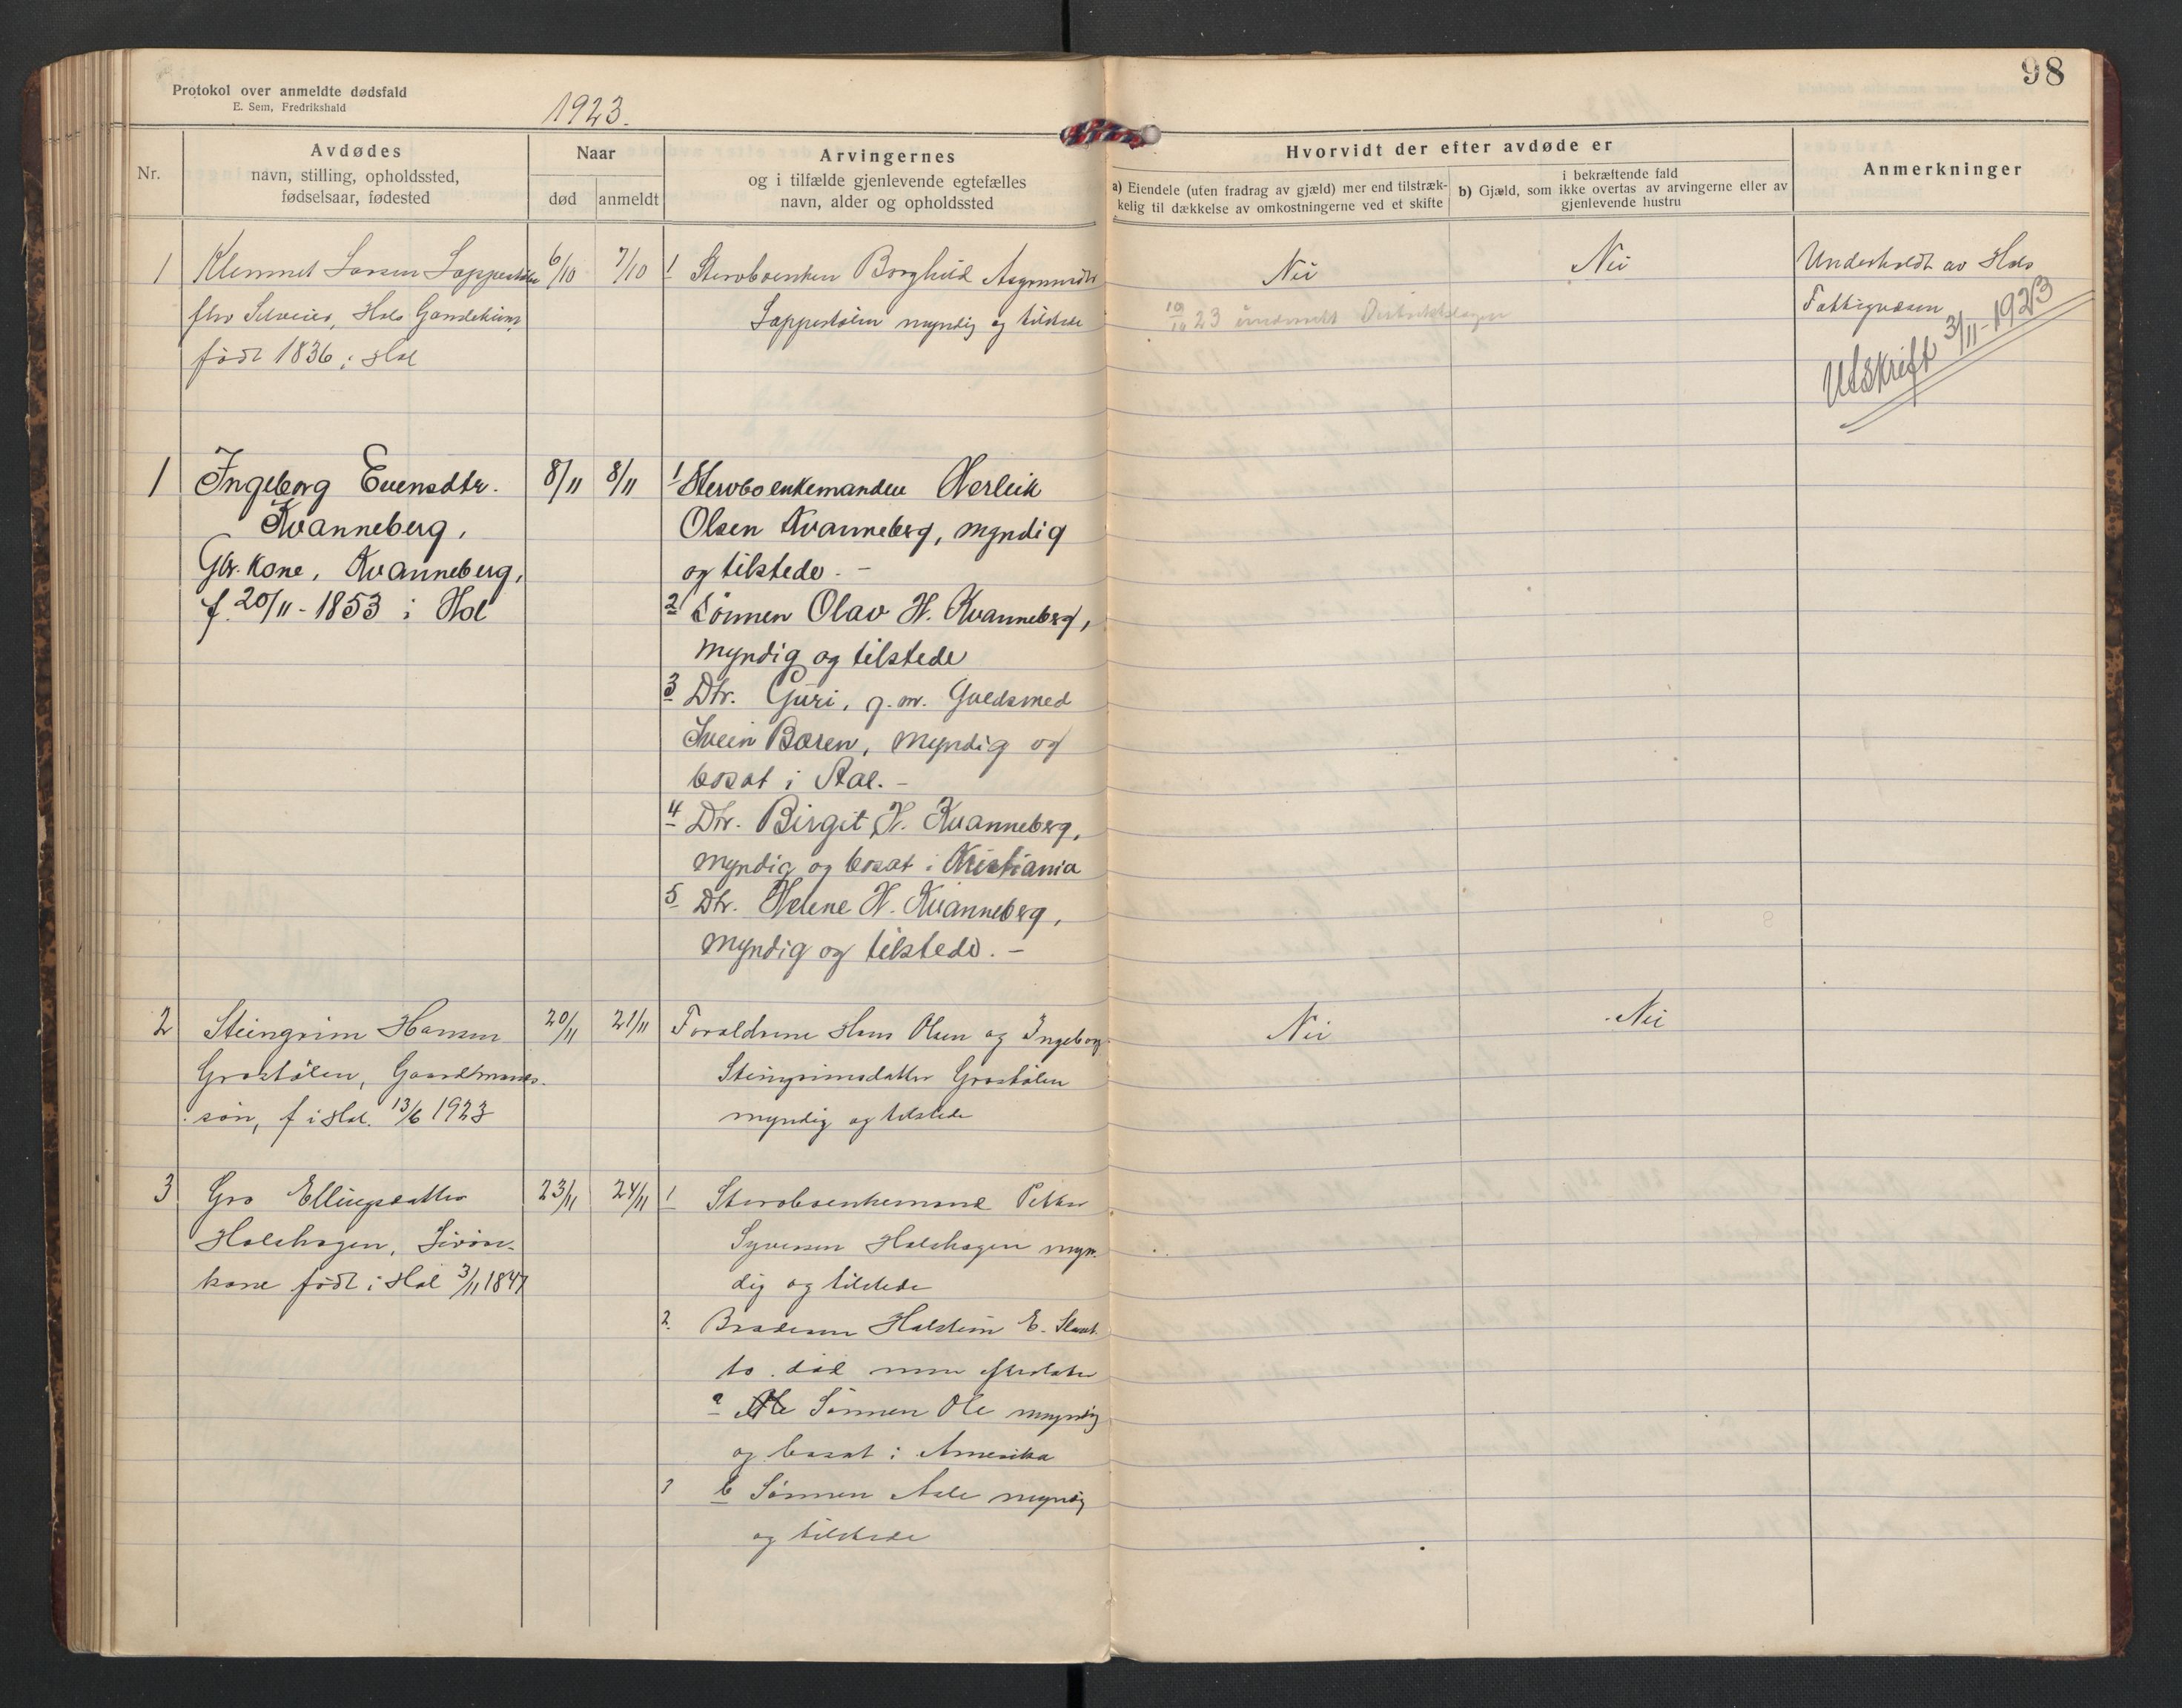 98
Protokol over anmeldte dødsfald
E. Sem, Fredrikshald
1923.
Nr.
Avdødes
navn, stilling, opholdssted,
fødselsaar, fødested
Naar
død
anmeldt
Arvingernes
og i tilfælde gjenlevende egtefælles
navn, alder og opholdssted
Hvorvidt der efter avdøde er
a) Eiendele (uten fradrag av gjæld) mer end tilstræk-
kelig til dækkelse av omkostningerne ved et skifte
i bekræftende fald
b) Gjæld, som ikke overtas av arvingerne eller av
gjenlevende hustru
Anmerkninger
1
Klemmet Larsen
født 1836 i Hol
6/10
7/10
1 Stervboenken Borghild
myndig og tilstede
Nei
Nei
10/10 23
Underholdt av Hols
Fattigvæsen
Utskrift 3/11-1923
1
Ingeborg Evensdtr.
Kvanneberg,
Gbr. kone, Kvanneberg,
f. 20/11 - 1853 i Hol
8/11
8/11
1 Stervboenkemanden Herleik
Olsen Kvanneberg, myndig
og tilstede. -
2 Sönnen Olav H. Kvanneberg,
myndig og tilstede
3 Dtr. Guri, g. m. Guldsmed
Svein Baren, myndig og
bosat i Aal. -
4 Dtr. Birgit H. Kvanneberg,
myndig og bosat i Kristiania
5 Dtr. Helene H. Kvanneberg,
myndig og tilstede. -
2
Steingrim Hansen
Grøstölen, Gaardmands-
sön, f i Hol. 13/6 1923
20/11
21/11
Foraldrene Hans Olsen og Ingeborg
Steingrimsdatter Grøstölen
myndig og tilstede
Nei
Nei
3
Gro Ellingsdatter
Holshagen,
kone født i Hol 3/11 1847
23/11
24/11
1 Stervboenkemand Petter
Syversen Holshagen myn-
dig og tilstede
2. Broderen Halstein E.
to. död men efterlater
a Ole Sönnen Ole myndig
og bosat i Amerika
b Sönnen Asle myndig
og tilstede